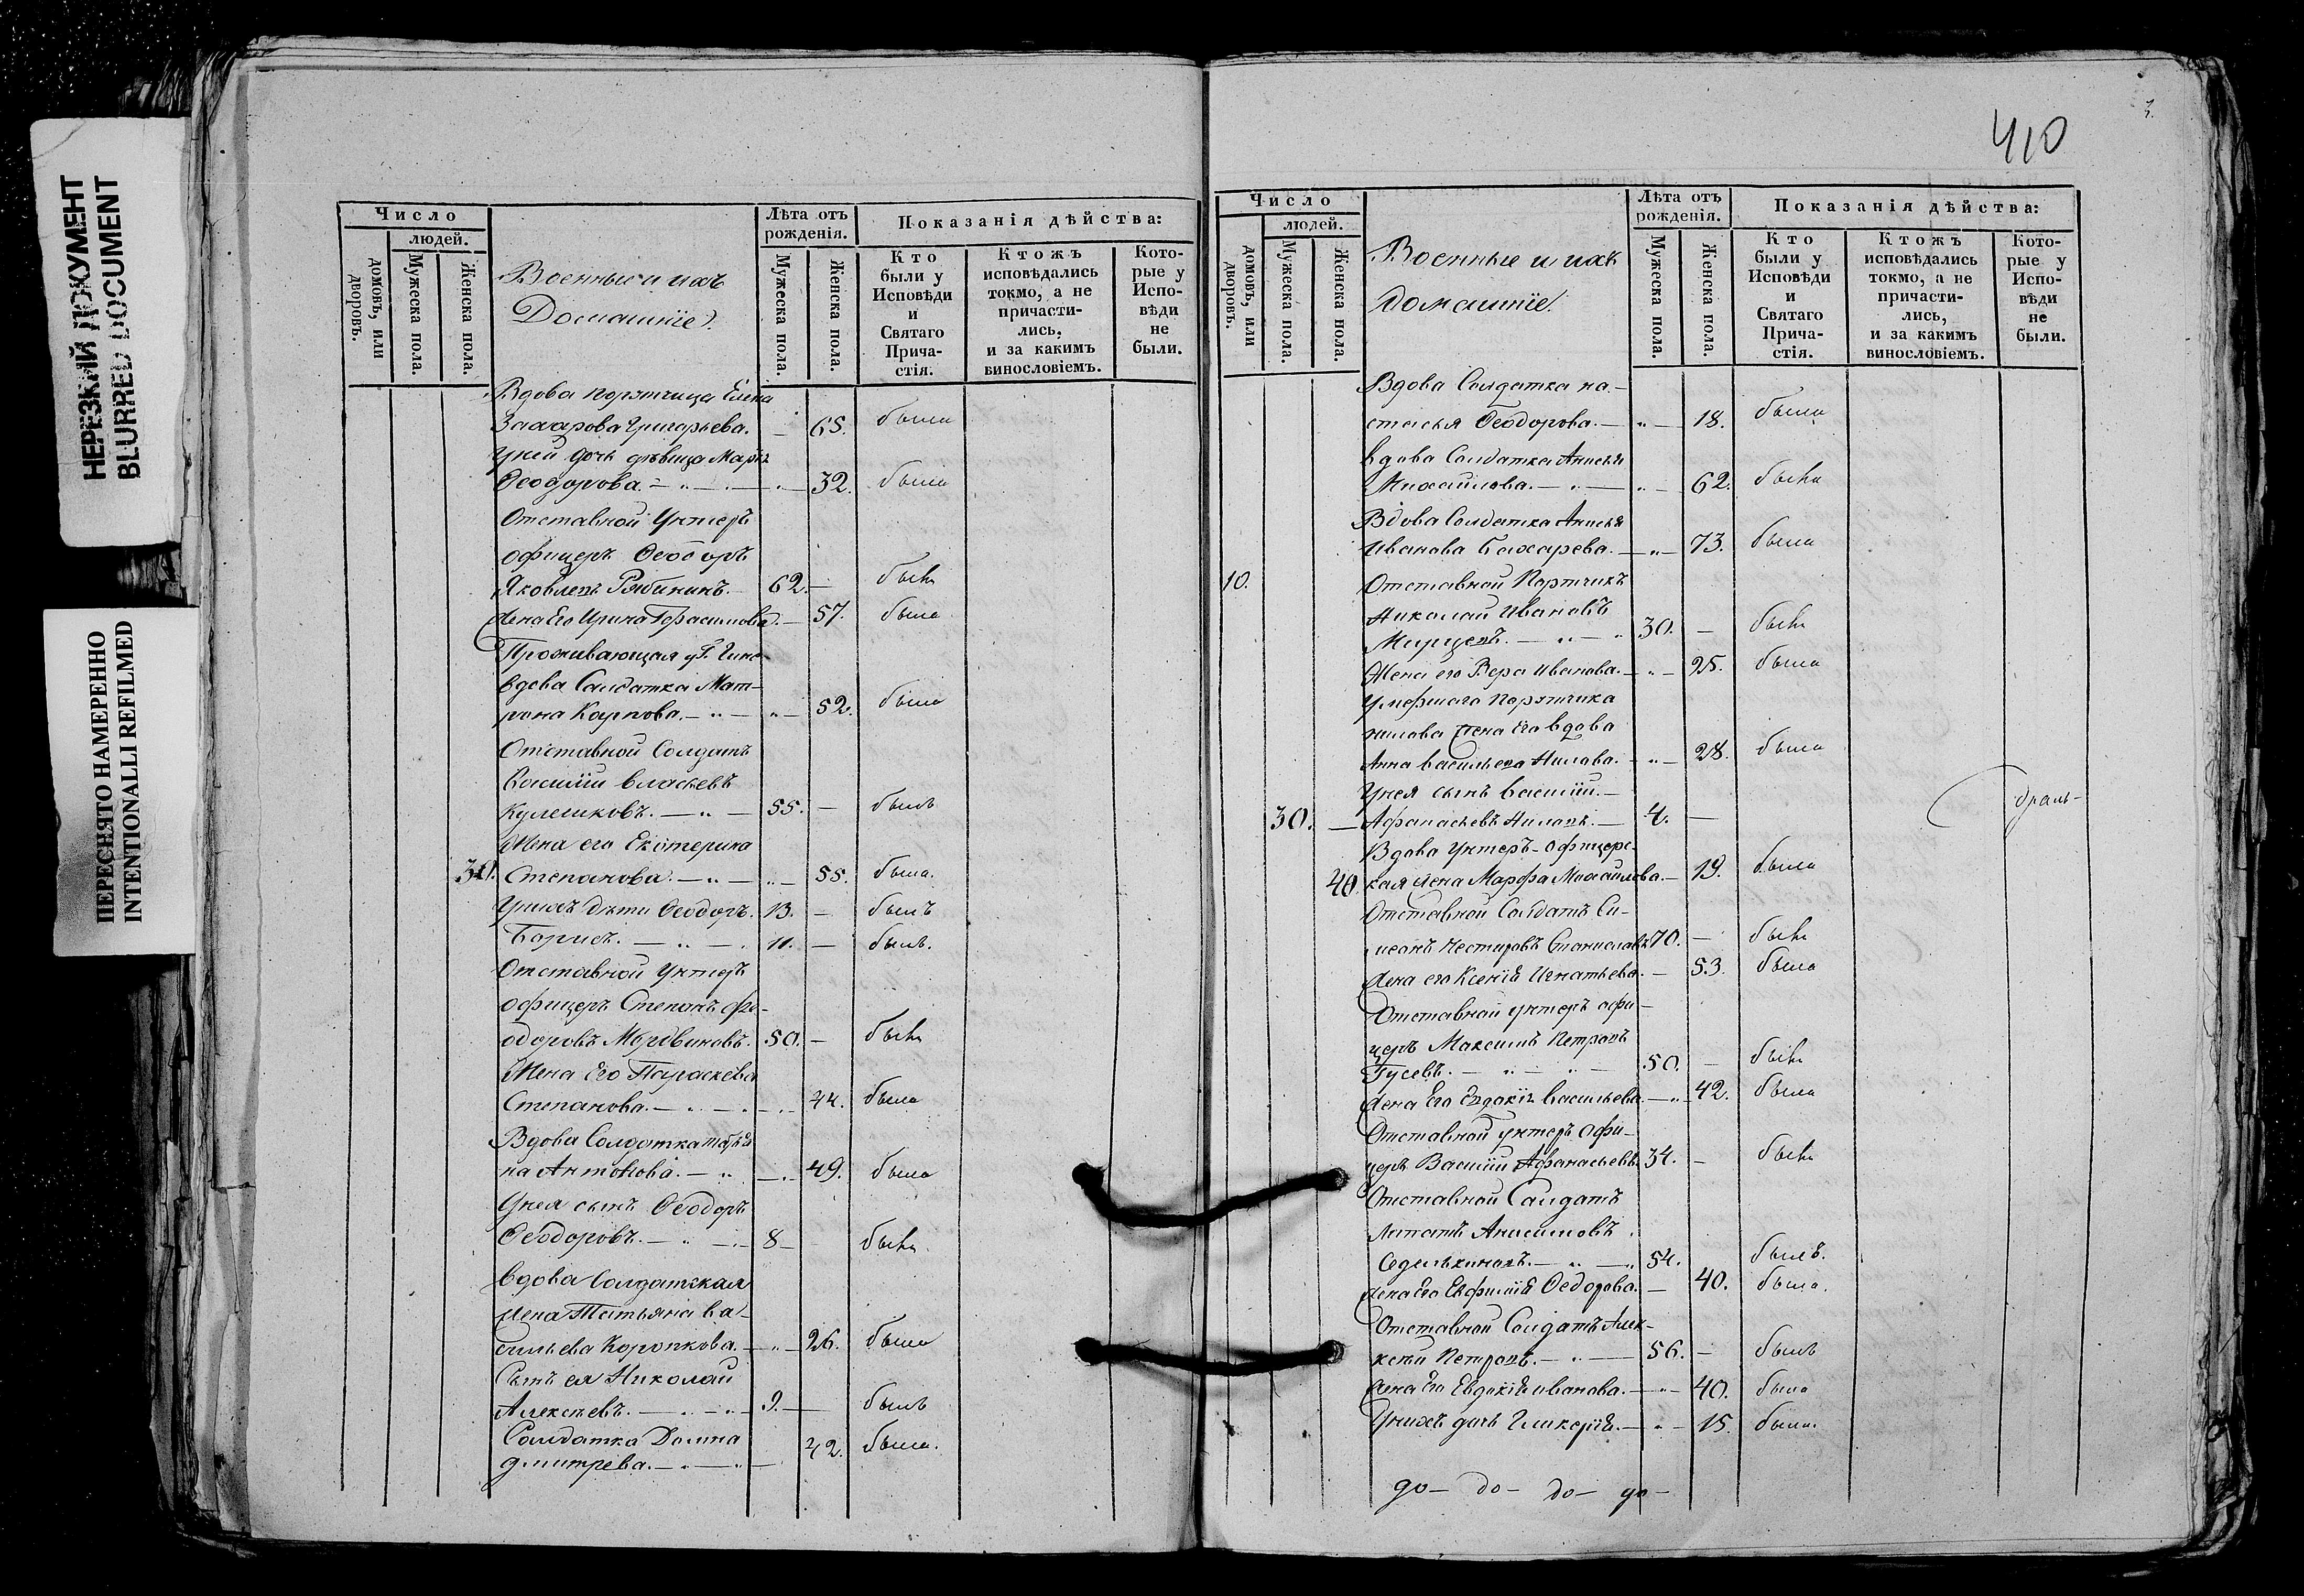 НЕРЕЗКИЙ ДОКУМЕНТ
BLURRED DOCUMENT
ПЕРЕСНЯТО НАМЕРЕННО
INTENTIONALLI REFILMED
Число
людей.
домовъ, или дворовъ.
Мужеска пола.
Женска пола.
Военные и ихъ
Домашніе.
Лѣта отъ рожденія.
Мужеска пола.
Женска пола.
Показанія дѣйства:
Кто были у Исповѣди и Святаго Прича-стія.
Ктожъ исповѣдались токмо, а не причасти-лись, и за какимъ винословіемъ.
Кото-рые у Испо-вѣди не были.
Вдова порутчица Елена
Захарова Григорьева. — 65. была
У ней дочь дѣвица Марія
Ѳеодорова. — „ — 32. была
Отставной Унтеръ
офицеръ Ѳеодоръ
Яковлевъ Рябининъ. 62. — былъ
Жена Его Ирина Герасимова. — 57. была
Проживающая у Г.
вдова Солдатка Мат-
рона Карпова. — „ — 52. была
Отставной Солдатъ
Василій Власьевъ
Кулешковъ. — „ — 55. — былъ
Жена его Екатерина
30. Степанова. — „ — 55. была.
У нихъ дѣти Ѳеодоръ. 13. — былъ
Борисъ. — „ — 11. — былъ.
Отставной Унтеръ
офицеръ Степанъ Фе-
одоровъ Мордвиновъ. 50. — былъ
Жена Его Параскева
Степанова. — „ — 44. была
Вдова Солдатка
на Антонова. — „ — 49. была
У нея сынъ Ѳеодоръ
Ѳеодоровъ. — „ — 8 — былъ.
вдова Солдатская
жена Татьяна Ва-
сильева Коропкова. — „ — 26. была
Сынъ ея Николай
Алексѣевъ. — „ — 9. — былъ
Солдатка Домна
Дмитрева. — „ — 42. была.
410
3.
Число
людей.
домовъ, или дворовъ.
Мужеска пола.
Женска пола.
Военные и ихъ
Домашніе.
Лѣта отъ рожденія.
Мужеска пола.
Женска пола.
Показанія дѣйства:
Кто были у Исповѣди и Святаго Прича-стія.
Ктожъ исповѣдались токмо, а не причасти-лись, и за какимъ винословіемъ.
Кото-рые у Испо-вѣди не были.
Вдова Солдатка На-
стасья Ѳеодорова. — „ — 18. была
вдова Солдатка Анисья
Михайлова. — „ — 62. была
Вдова Солдатка Анисья
Иванова Бахарева. — „ — 73. была
10. Отставной Портчикъ
Николай Ивановъ
— „ — 30. — былъ
Жена его Вера Иванова. — „ — 25. была
Умершаго Порутчика
Нилова Жена Его вдова
Анна Васильева Нилова. — „ — 28. была
У нея сынъ Василій. —
30. — Афанасьевъ Ниловъ. — 4. —
Вдова Унтеръ-офицерс-
40. кая жена Марфа Михайлова. — 19. была
Отставной Солдатъ Си-
меонъ Нестировъ Станиславъ 70. — былъ
Жена его Ксенія Игнатьева. — 53. была
Отставной унтеръ офи-
церъ Максимъ Петровъ
Гусевъ. — „ — „ — 50. — былъ
Жена Его Евдокія Васильева. — „ — 42. была
Отставной унтеръ офи-
церъ Василій Афанасьевъ 34. — былъ
Отставной Солдатъ
Анисимовъ
— „ — „ 54. былъ.
Жена Его Евфимія Ѳедорова. — 40. была.
Отставной Солдатъ Алек-
сѣй Петровъ. — „ — 56. — былъ
Жена Его Евдокія Иванова. — „ — 40. была
У нихъ дочь Гликерія. — „ — 15. была.
до — до — до — до —